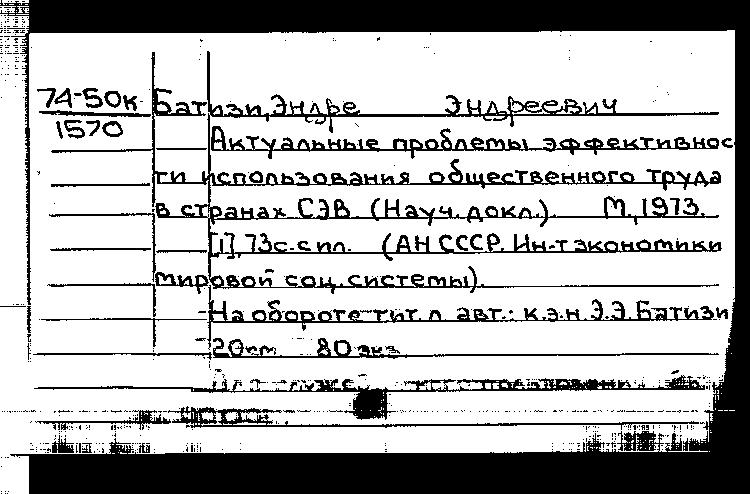 74-50к Батизи, Эндре Эндреевич
1570
Актуальные проблемы эффективнос
ти использования общественного труда
в странах СЭВ. (Науч. докл.). М., 1973.
[1], 73с. с ил. (АН СССР. Ин-т экономики
мировой соц. системы).
На обороте тит. л. авт.: к.э.н. Э.Э. Батизи
120 80 экз.
Для пользования